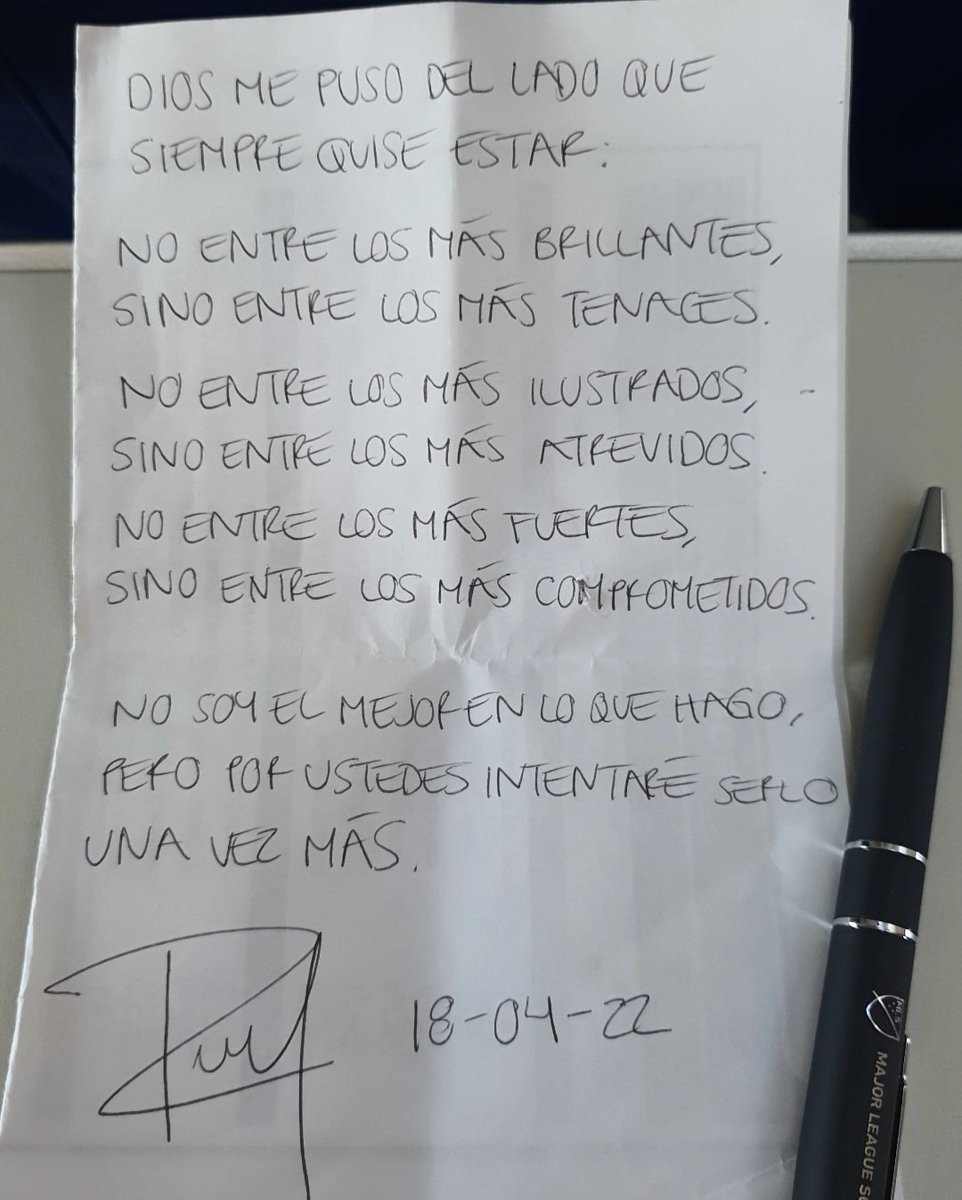 DIOS ME PUSO DEL LADO QUE
SIEMPRE QUISE ESTAR:
NO ENTRE LOS MÁS BRILLANTES,
SINO ENTRE LOS MÁS TENACES.
NO ENTRE LOS MÁS ILUSTRADOS,
SINO ENTRE LOS MÁS ATREVIDOS.
NO ENTRE LOS MÁS FUERTES,
SINO ENTRE LOS MÁS COMPROMETIDOS.
NO SOY EL MEJOR EN LO QUE HAGO,
PERO POR USTEDES INTENTARÉ SERLO
UNA VEZ MÁS.
18-04-22
MLS
MAJOR LEAGUE